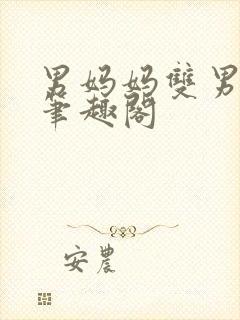 男妈妈双男
笔趣阁
安农